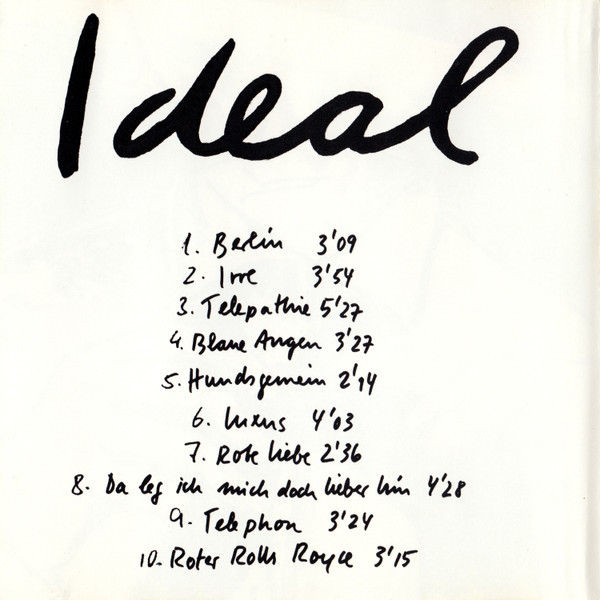 Ideal
1. Berlin 3'09
2. Irre 3'54
3. Telepathie 5'27
4. Blaue Augen 3'27
5. Hundsgemein 2'14
6. Luxus 4'03
7. Rote Liebe 2'36
8. Da leg ich mich doch lieber hin 4'28
9. Telephon 3'24
10. Roter Rolls Royce 3'15